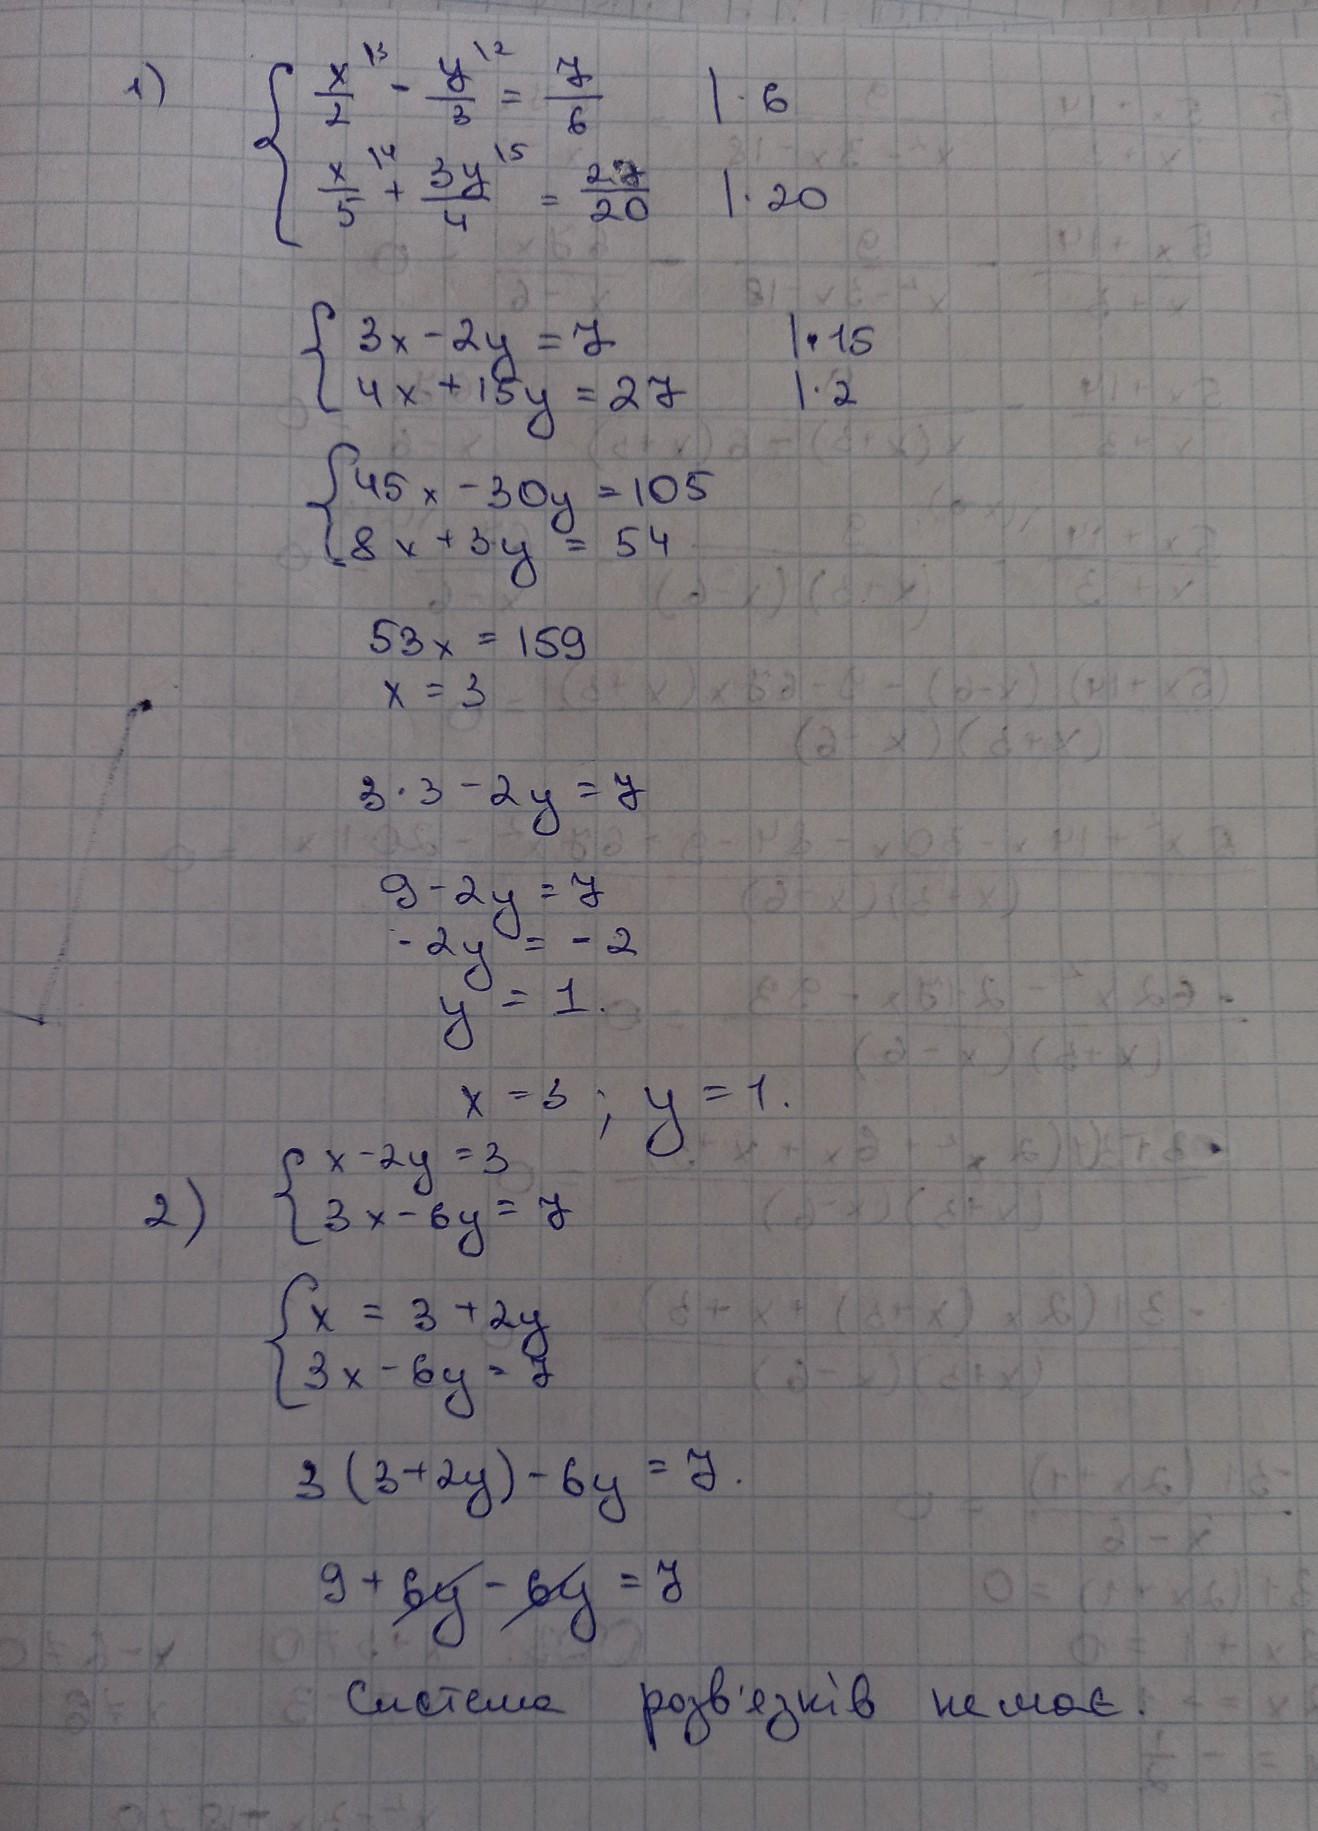 1) { x/2 \3 - y/3 \2 = 7/6 | · 6
x/5 \4 + 3y/4 \5 = 27/20 | · 20
{ 3x - 2y = 7 | · 15
4x + 15y = 27 | · 2
{ 45x - 30y = 105
8x + 3y = 54
53x = 159
x = 3
3 · 3 - 2y = 7
9 - 2y = 7
- 2y = - 2
y = 1.
x = 3 ; y = 1.
2) { x - 2y = 3
3x - 6y = 7
{ x = 3 + 2y
3x - 6y = 7
3 (3 + 2y) - 6y = 7.
9 + 6y - 6y = 7
Система розв'язків немає.